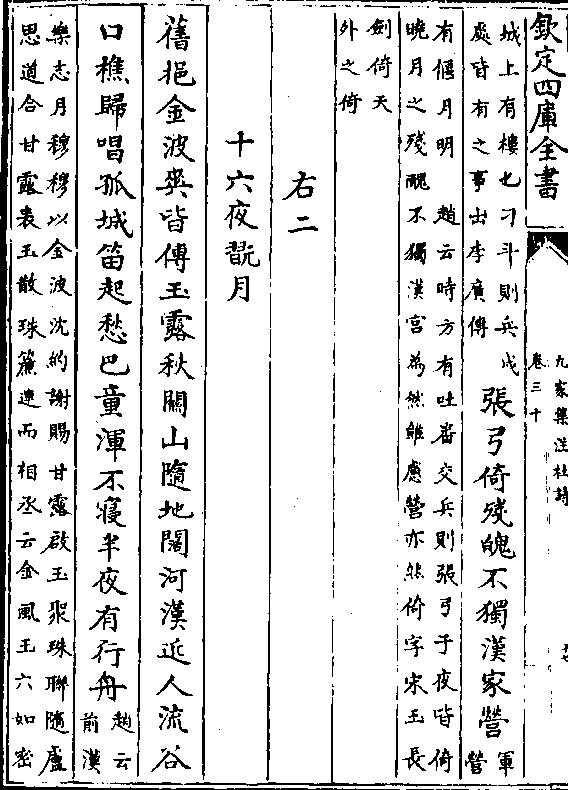 欽定四庫全書
九家集注杜詩
卷三十
城上有樓也刁斗則兵戍
處皆有之事出李廣傳
張弓倚殘魄不獨漢家營
軍
營
有偃月明 趙云時方有吐番交兵則張弓于夜皆倚
曉月之殘魄不獨漢宫為然雖慮營亦然倚字宋玉長
劍倚天
外之倚
右二
十六夜翫月
舊挹金波爽皆傳玉露秋關山隨地闊河漢近人流谷
口樵歸唱孤城笛起愁巴童渾不寢半夜有行舟
趙云
前漢
樂志月穆穆以金波沈約謝賜甘露啟玉聚珠聯隨盧
思道合甘露表玉散珠簾連而相丞云金風玉六如密